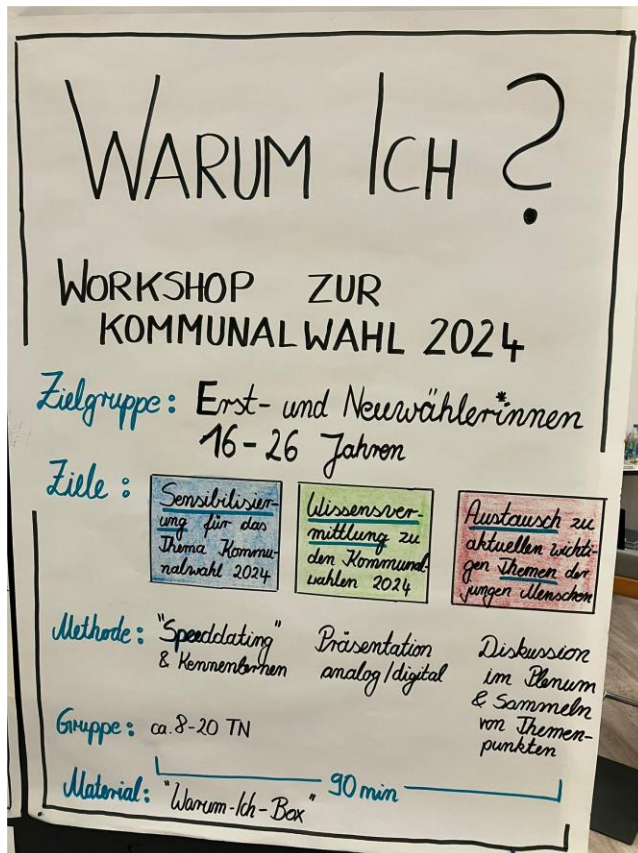 WARUM ICH ?
WORKSHOP ZUR
KOMMUNALWAHL 2024
Zielgruppe: Erst- und Neuwähler*innen
16-26 Jahren
Ziele:
Sensibilisier-
ung für das
Thema Kommu-
nalwahl 2024
Wissensver-
mittlung zu
den Kommunal-
wahlen 2024
Austausch zu
aktuellen wichti-
gen Themen der
jungen Menschen
Methode:
"Speeddating"
& Kennenlernen
Präsentation
analog/digital
Diskussion
im Plenum
& Sammeln
von Themen-
punkten
Gruppe: ca. 8-20 TN
90 min
Material: "Warum-Ich-Box"